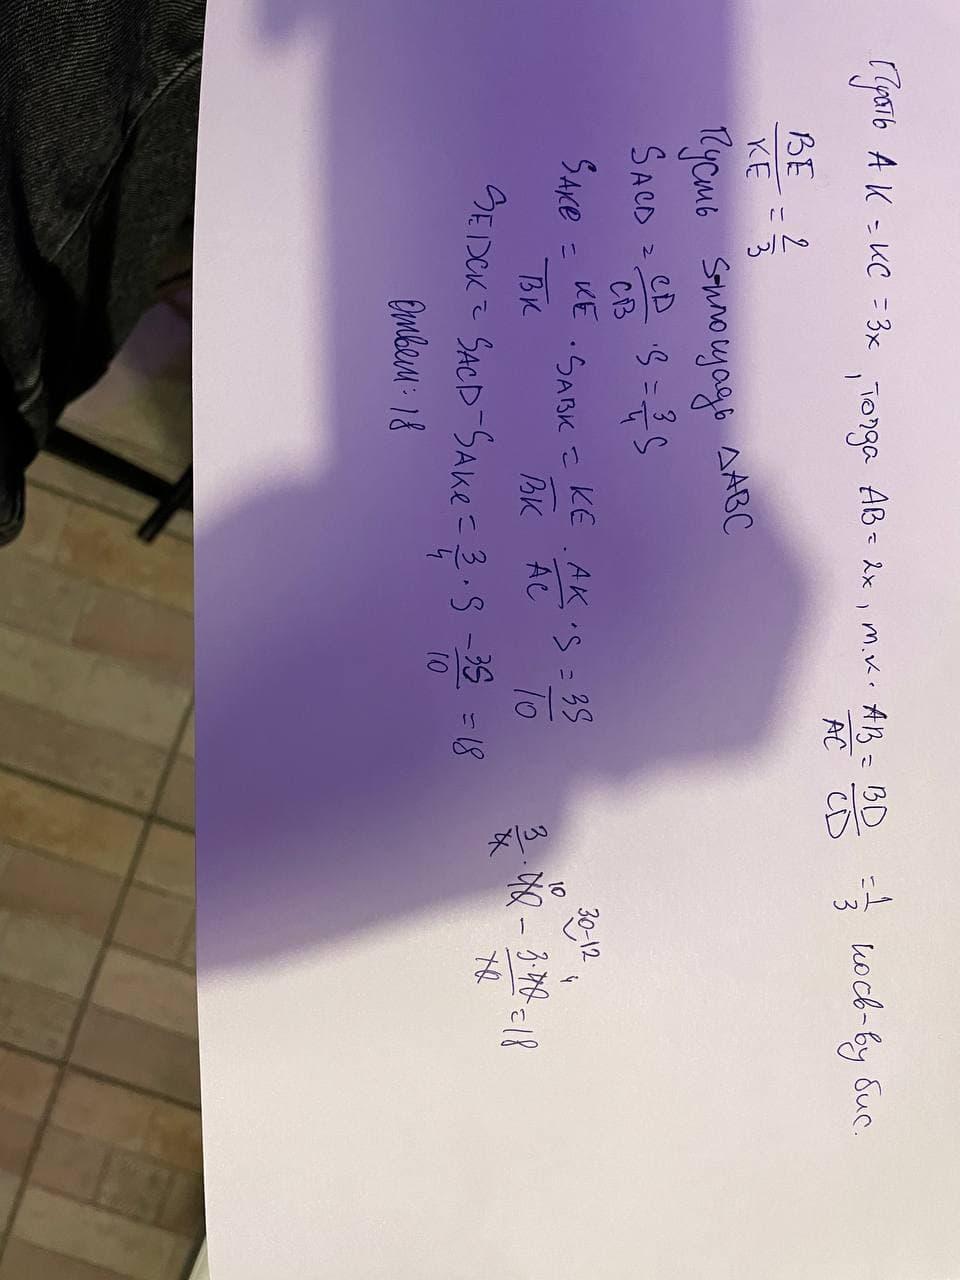 Пусть AK = KC = 3x, тогда AB = 2x, т.к. AB/AC = BD/CD = 1/3 по св-ву бис.
BE/KE = 2/3
Пусть S-площадь △ABC
SACD = CD/CB · S = 3/4 S
SAKE = KE/BK · SABK = KE/BK · AK/AC · S = 3S/10
SEDCK = SACD - SAKE = 3/4 · S - 3S/10 = 18
30-12
3/4 · 40 10 - 3·40 4/10 = 18
Ответ: 18